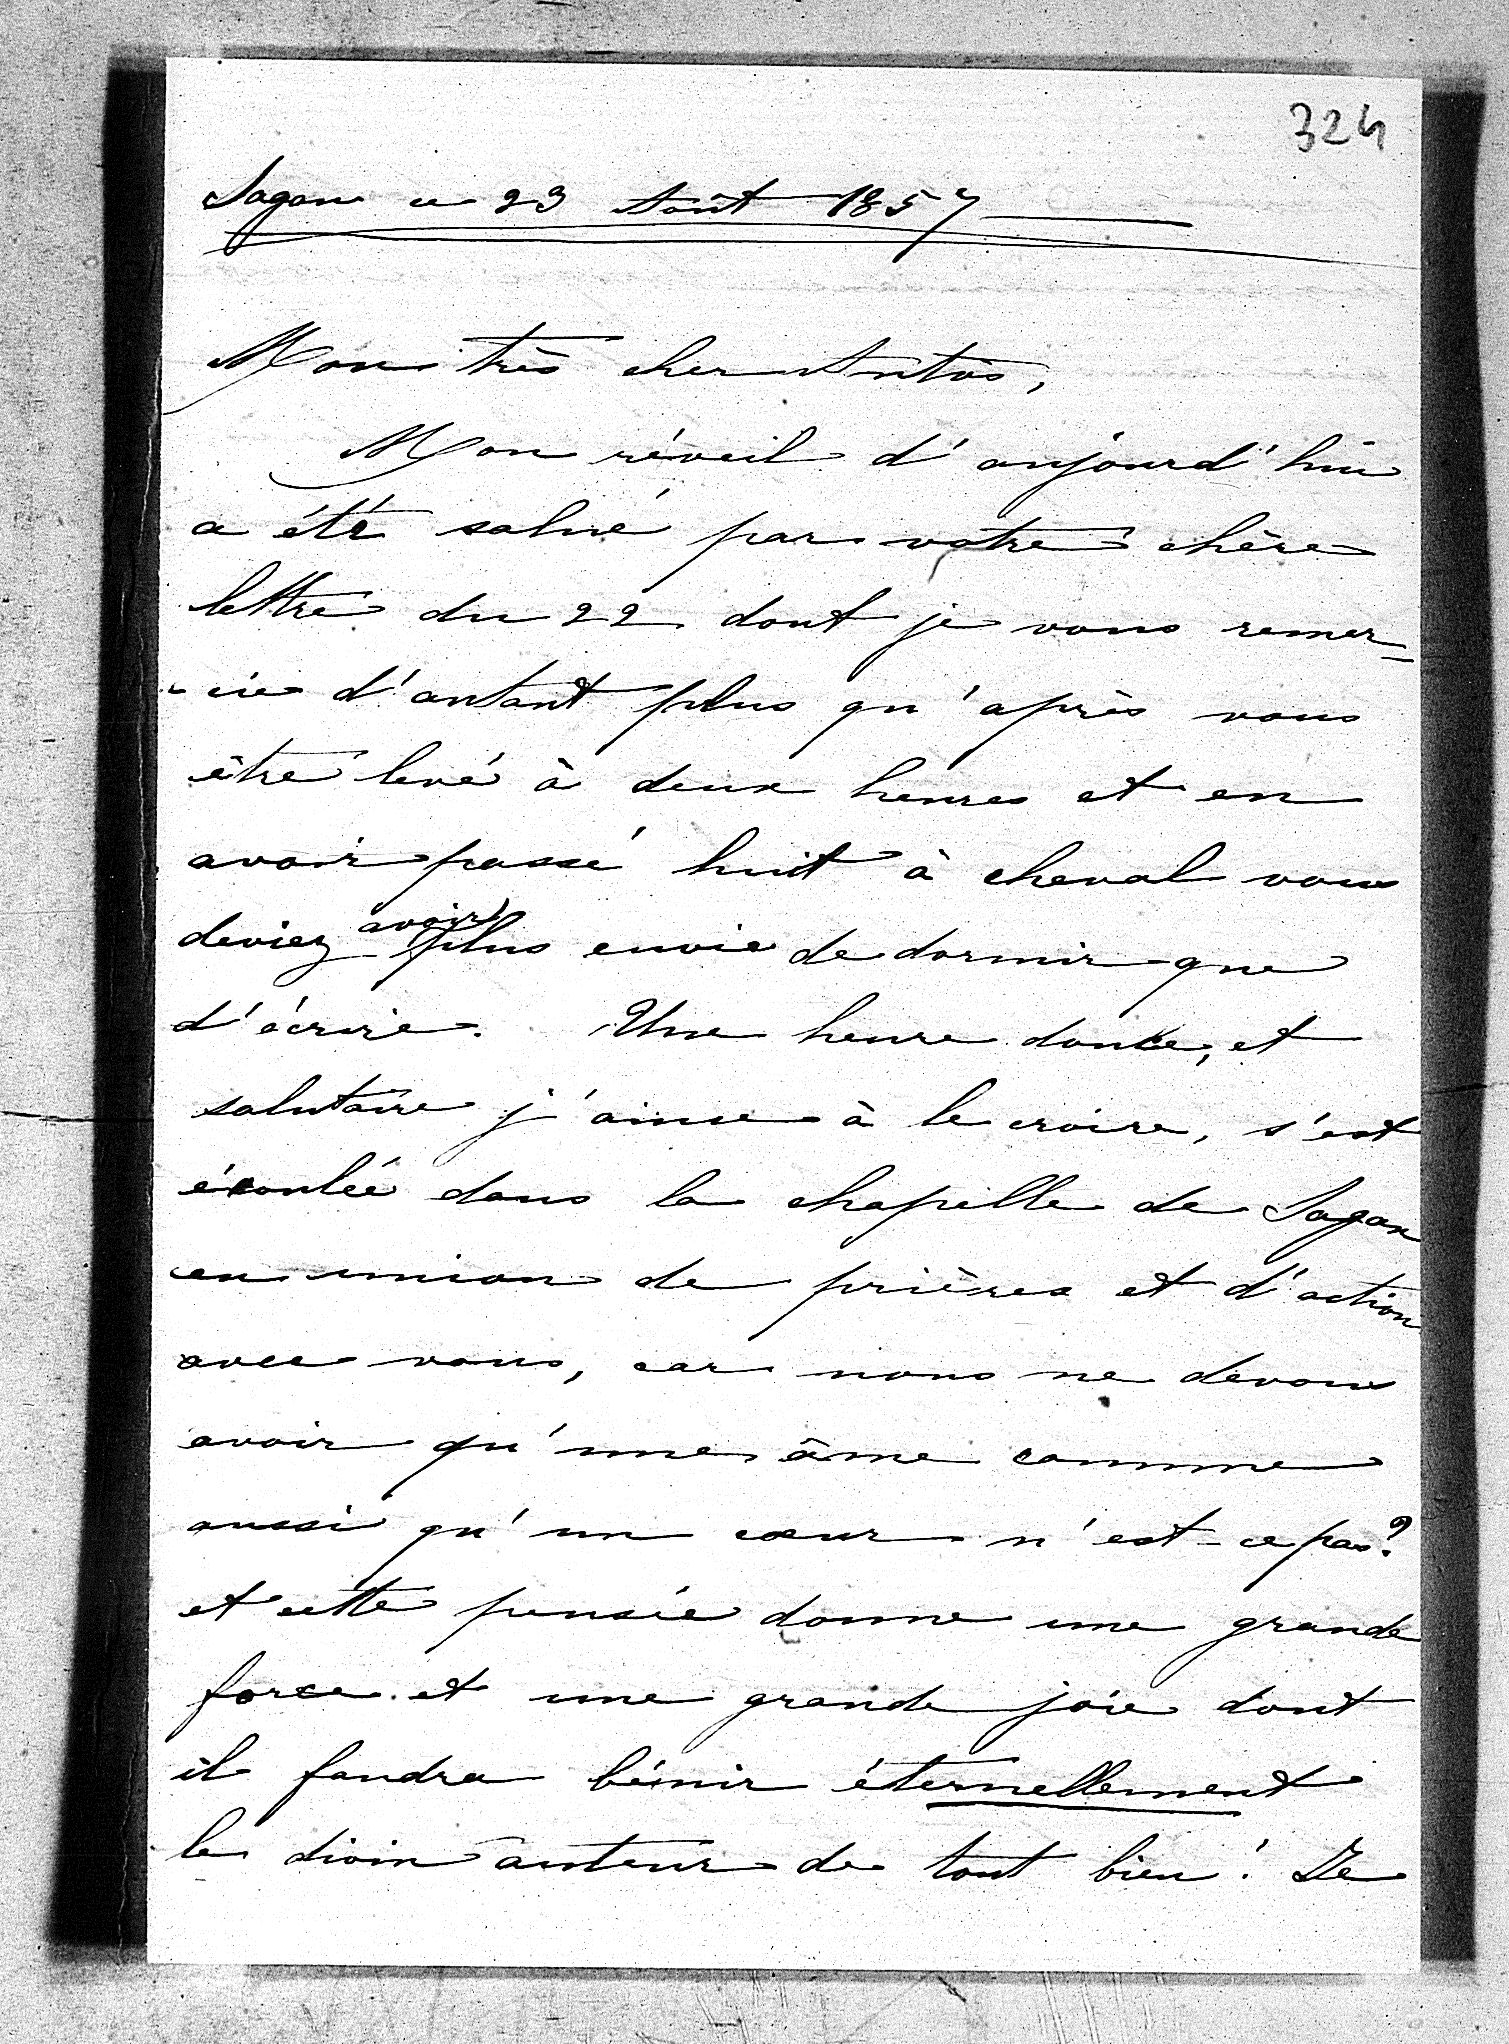 324
Sagan ce 23 Août 1857
Mon très cher Antòs,
Mon réveil d'aujourd'hui
a été salué par votre chère
lettre du 22 dont je vous remer-
-cie d'autant plus qu'après vous
être levé à deux heures et en
avoir passé huit à cheval vous
deviez avoir plus envie de dormir que
d'écrire. Une heure douce, et
salutaire j'aime à le croire, s'est
écoulée dans la chapelle de Sagan
en union de prières et d'action
avec vous, car nous ne devons
avoir qu'une âme comme
aussi qu'un cœur n'est-ce pas?
et cette pensée donne une grande
force et une grande joie dont
il faudra bénir éternellement
le divin auteur de tout bien! Je